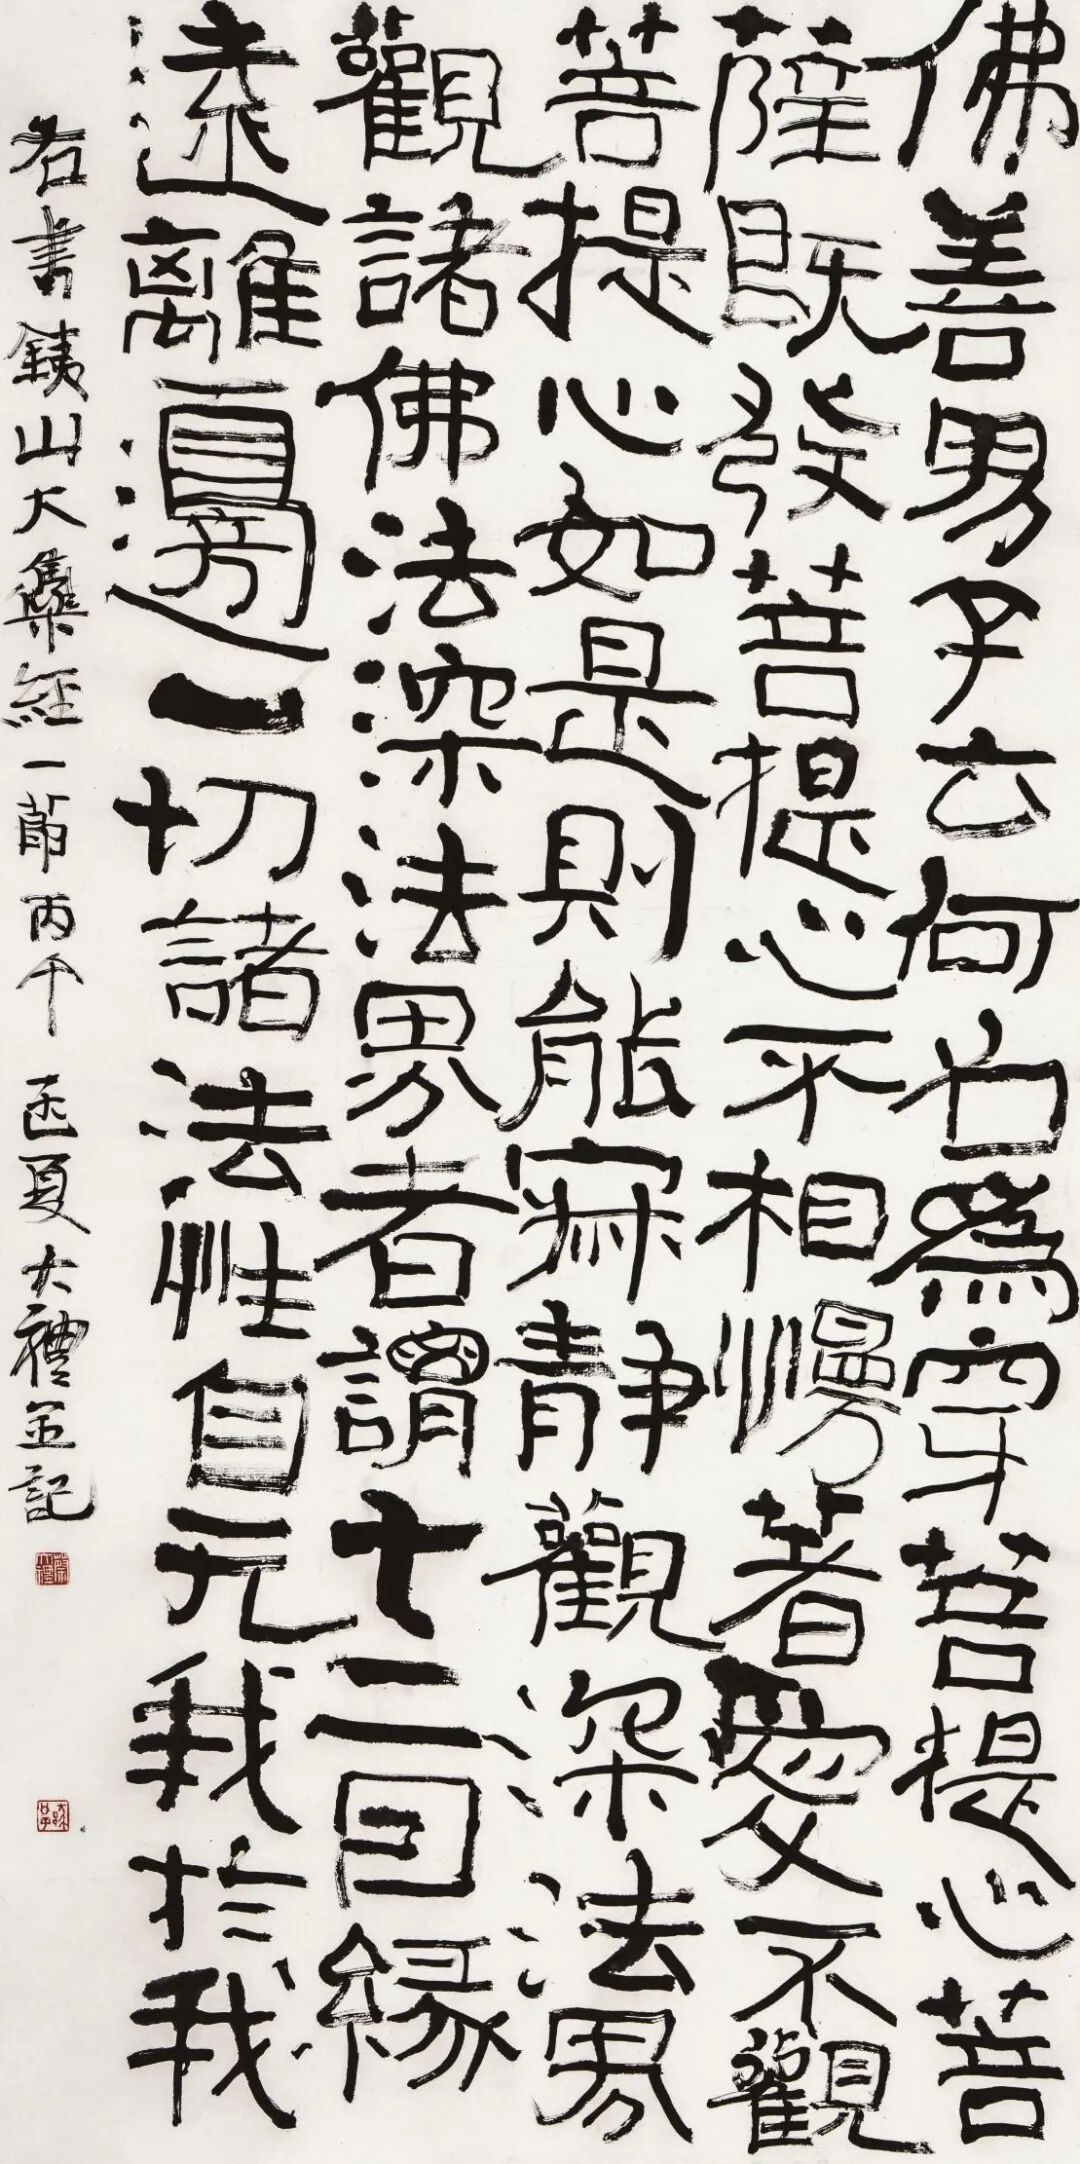 佛善男子云何名為穿菩提心菩
薩既發菩提心不相慢著愛不觀
菩提心如是則能寂靜觀深法界
觀諸佛法深法界者謂十二因緣
遠離邊一切諸法性自无我於我
右書銕山大集經一節丙午孟夏大禮並記